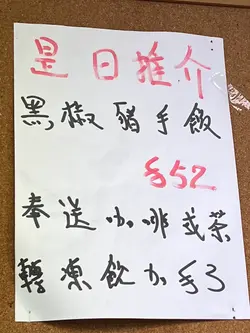 是日推介
黑椒豬手飯
$52
奉送咖啡或茶
轉凍飲加$3